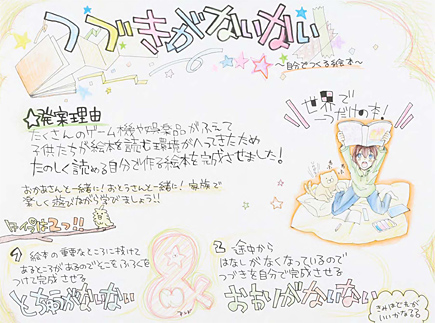 つづきがないない
～自分でつくる絵本～
☆発案理由
たくさんのゲーム機や娯楽品がふえて
子供たちが絵本を読む環境がへってきたため
たのしく読める自分で作る絵本を完成させました！
おかあさんと一緒に！おとうさんと一緒に！家族で
楽しく遊びながら学びましょう！！
世界で
一つだけの本！
タイプは2つ！！
1 絵本の重要なところに抜けて
あるところがあるのでそこをふろくを
つけて完成させる
2 途中から
はなしがなくなっているので
つづきを自分で完成させる
おわりがないない